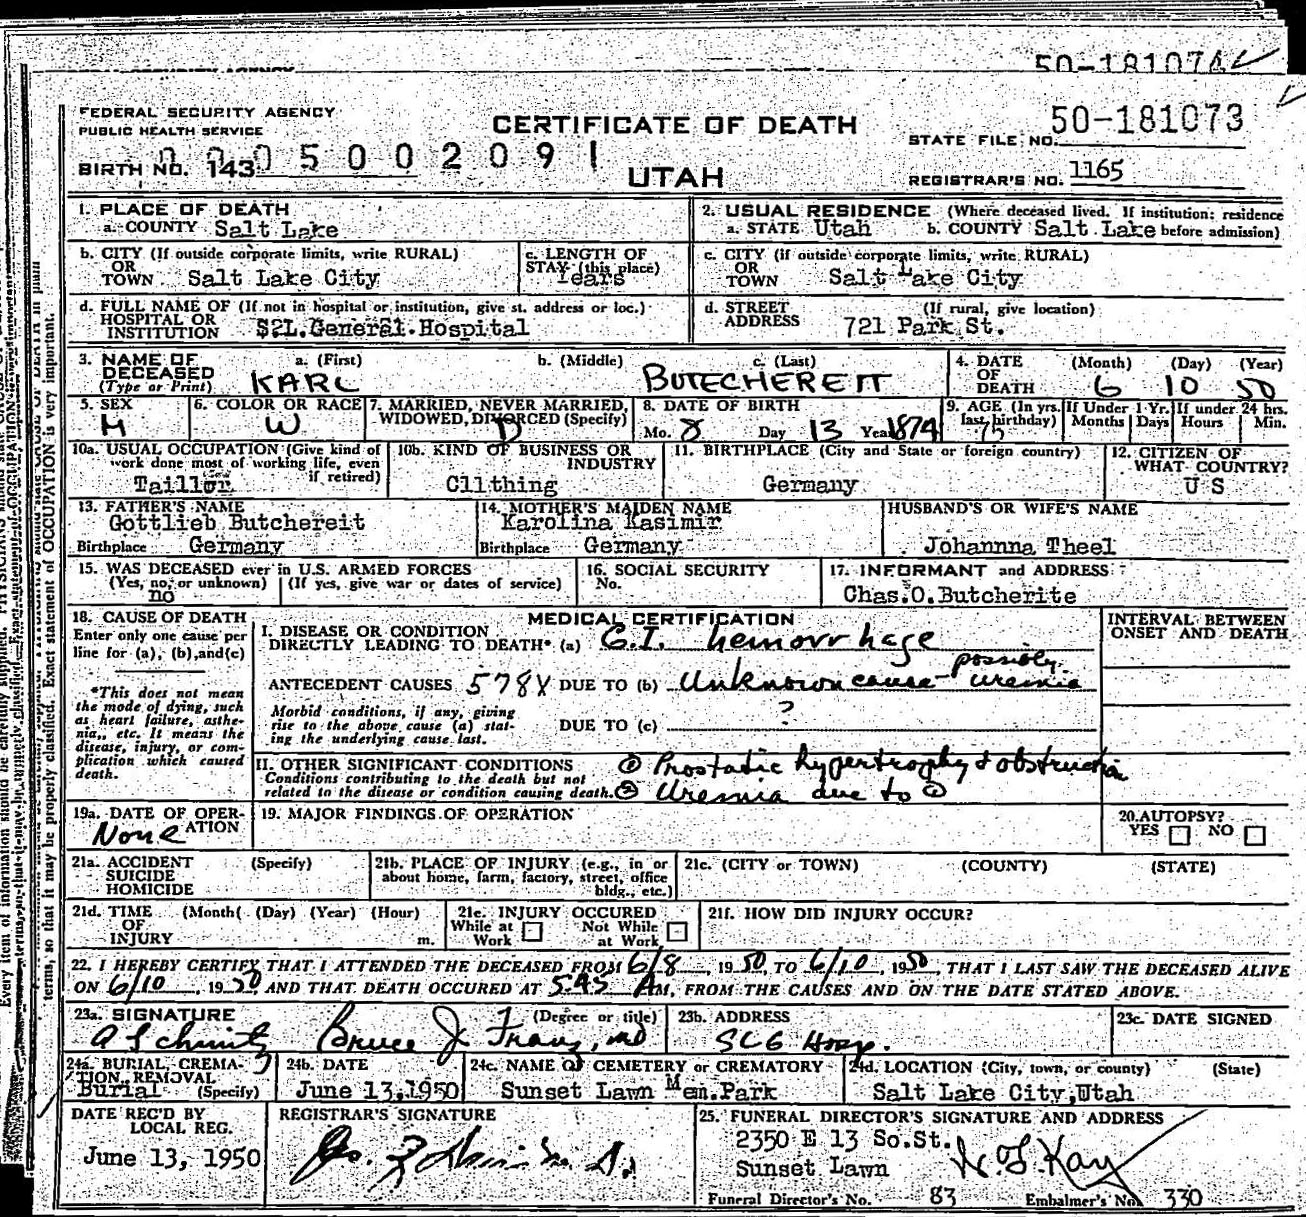 50-181074
FEDERAL SECURITY AGENCY
PUBLIC HEALTH SERVICE
CERTIFICATE OF DEATH
STATE FILE NO. 50-181073
BIRTH NO. 143 0 0 0 5 0 0 2 0 9 1
UTAH
REGISTRAR'S NO. 1165
1. PLACE OF DEATH
a. COUNTY Salt Lake
2. USUAL RESIDENCE (Where deceased lived. If institution: residence before admission)
a. STATE Utah b. COUNTY Salt Lake
b. CITY (If outside corporate limits, write RURAL)
OR
TOWN Salt Lake City
c. LENGTH OF
STAY (this place)
Years
c. CITY (if outside corporate limits, write RURAL)
OR
TOWN Salt Lake City
d. FULL NAME OF (If not in hospital or institution, give st. address or loc.)
HOSPITAL OR
INSTITUTION S2L.General.Hospital
d. STREET (If rural, give location)
ADDRESS 721 Park St.
3. NAME OF DECEASED
(Type or Print)
a. (First) b. (Middle) c. (Last)
KARL BUTECHEREIT
4. DATE OF DEATH
(Month) (Day) (Year)
6 10 50
5. SEX
M
6. COLOR OR RACE
W
7. MARRIED, NEVER MARRIED,
WIDOWED, DIVORCED (Specify)
D
8. DATE OF BIRTH
Mo. 8 Day 13 Year 1874
9. AGE (In yrs. last birthday)
75
If Under 1 Yr.
Months Days
If under 24 hrs.
Hours Min.
10a. USUAL OCCUPATION (Give kind of
work done most of working life, even
if retired)
Taillor
10b. KIND OF BUSINESS OR
INDUSTRY
Cllthing
11. BIRTHPLACE (City and State or foreign country)
Germany
12. CITIZEN OF
WHAT COUNTRY?
U S
13. FATHER'S NAME
Gottlieb Butchereit
Birthplace Germany
14. MOTHER'S MAIDEN NAME
Karolina Kasimir
Birthplace Germany
HUSBAND'S OR WIFE'S NAME
Johannna Theel
15. WAS DECEASED ever in U.S. ARMED FORCES
(Yes, no, or unknown) (If yes, give war or dates of service)
no
16. SOCIAL SECURITY
No.
17. INFORMANT and ADDRESS
Chas.O.Butcherite
18. CAUSE OF DEATH
Enter only one cause per
line for (a), (b), and (c)
*This does not mean
the mode of dying, such
as heart failure, asthe-
nia, etc. It means the
disease, injury, or com-
plication which caused
death.
MEDICAL CERTIFICATION
INTERVAL BETWEEN
ONSET AND DEATH
I. DISEASE OR CONDITION
DIRECTLY LEADING TO DEATH* (a) G.I. hemorrhage
ANTECEDENT CAUSES 578X DUE TO (b) Unknown cause - possibly uremia
Morbid conditions, if any, giving
rise to the above cause (a) stat-
ing the underlying cause last.
DUE TO (c) ?
II. OTHER SIGNIFICANT CONDITIONS
Conditions contributing to the death but not
related to the disease or condition causing death.
① Prostatic hypertrophy & obstruction
② Uremia due to ①
19a. DATE OF OPER-
ATION
None
19. MAJOR FINDINGS OF OPERATION
20. AUTOPSY?
YES NO
21a. ACCIDENT (Specify)
SUICIDE
HOMICIDE
21b. PLACE OF INJURY (e.g., in or
about home, farm, factory, street, office
bldg., etc.)
21c. (CITY or TOWN) (COUNTY) (STATE)
21d. TIME (Month( (Day) (Year) (Hour)
OF
INJURY m.
21e. INJURY OCCURED
While at Work Not While at Work
21f. HOW DID INJURY OCCUR?
22. I HEREBY CERTIFY THAT I ATTENDED THE DECEASED FROM 6/8, 1950, TO 6/10, 1950, THAT I LAST SAW THE DECEASED ALIVE
ON 6/10, 1950, AND THAT DEATH OCCURED AT 5:45 AM, FROM THE CAUSES AND ON THE DATE STATED ABOVE.
23a. SIGNATURE (Degree or title)
A Schmitz Bruce J Franz, MD
23b. ADDRESS
SLG Hosp.
23c. DATE SIGNED
24a. BURIAL, CREMA-
TION, REMOVAL
Burial (Specify)
24b. DATE
June 13,1950
24c. NAME OF CEMETERY or CREMATORY
Sunset Lawn Mem.Park
24d. LOCATION (City, town, or county) (State)
Salt Lake City,Utah
DATE REC'D BY
LOCAL REG.
June 13, 1950
REGISTRAR'S SIGNATURE
25. FUNERAL DIRECTOR'S SIGNATURE AND ADDRESS
2350 E 13 So.St.
Sunset Lawn
Funeral Director's No. 83 Embalmer's No. 330